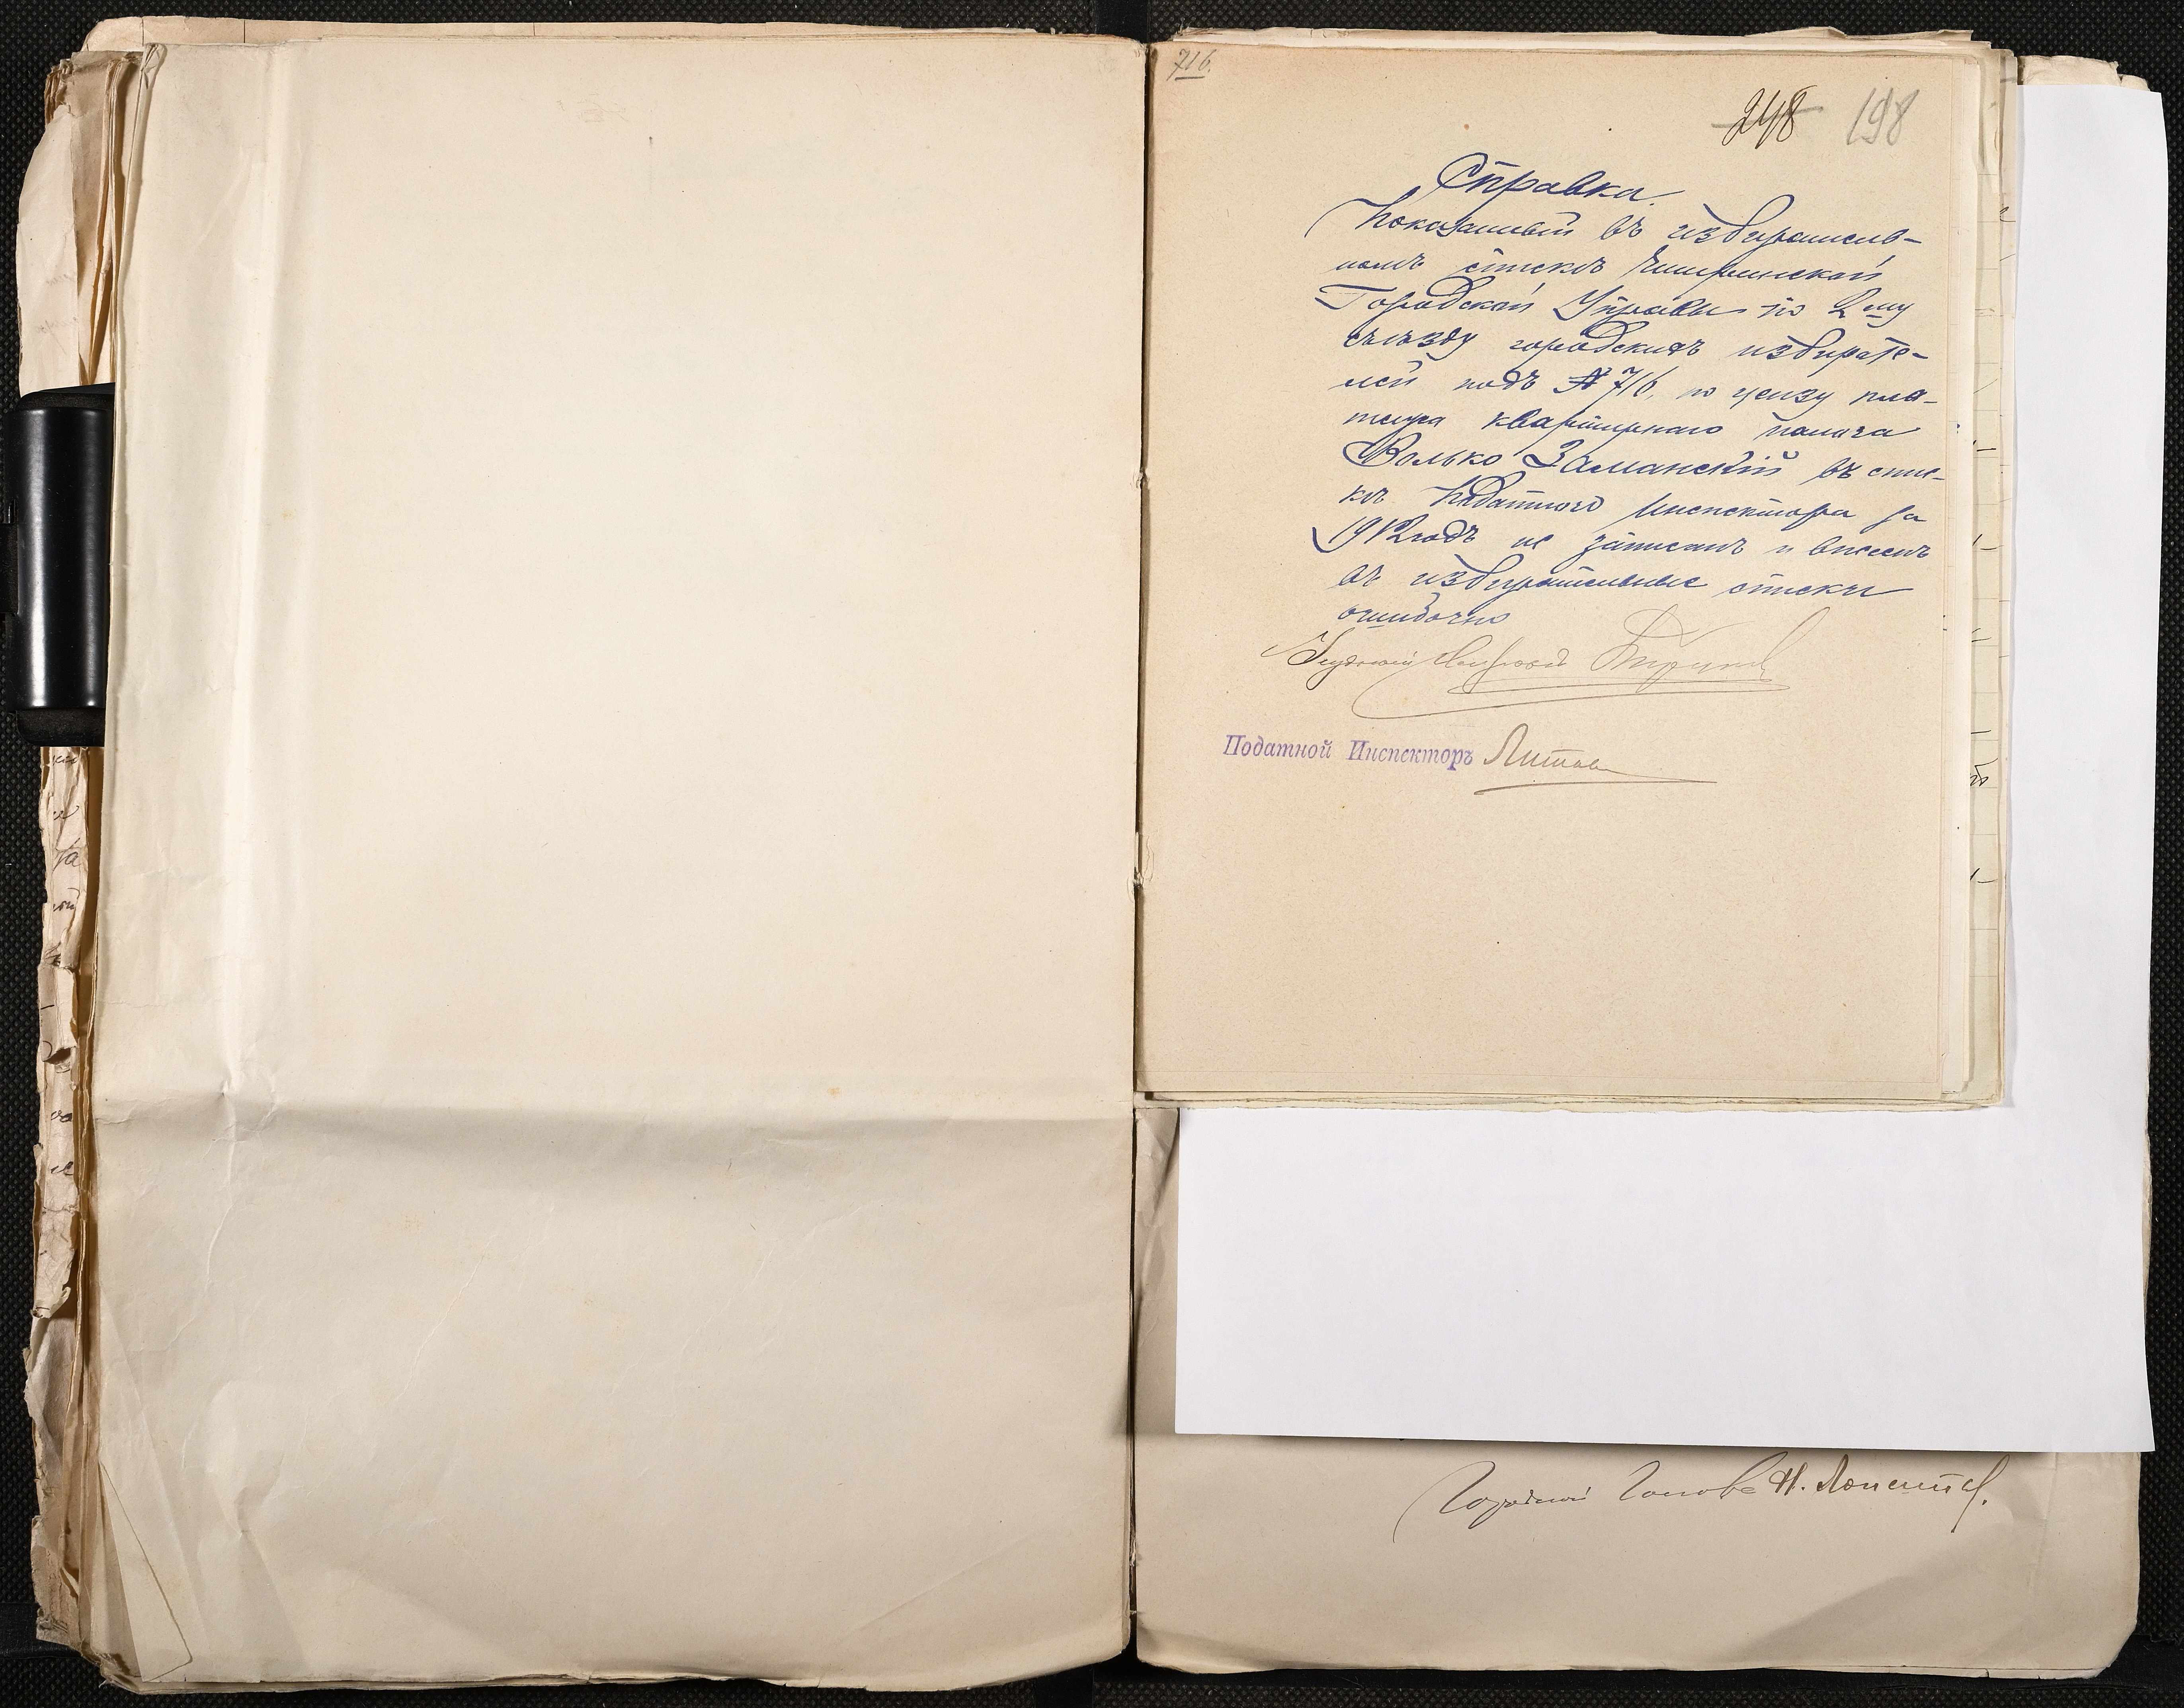 716.
248 198
Справка.
Показанный въ избиратель-
номъ спискѣ Чигиринской
Городской Управы по 2му
съѣзду городскихъ избирате-
лей подъ № 716, по цензу пла-
тежа квартирнаго налога
Волько Заманскій въ спис-
кѣ Податного Инспектора за
1912 годъ не записанъ и внесенъ
въ избирательные списки
ошибочно
Податной Инспекторъ
Городской Голова Н.